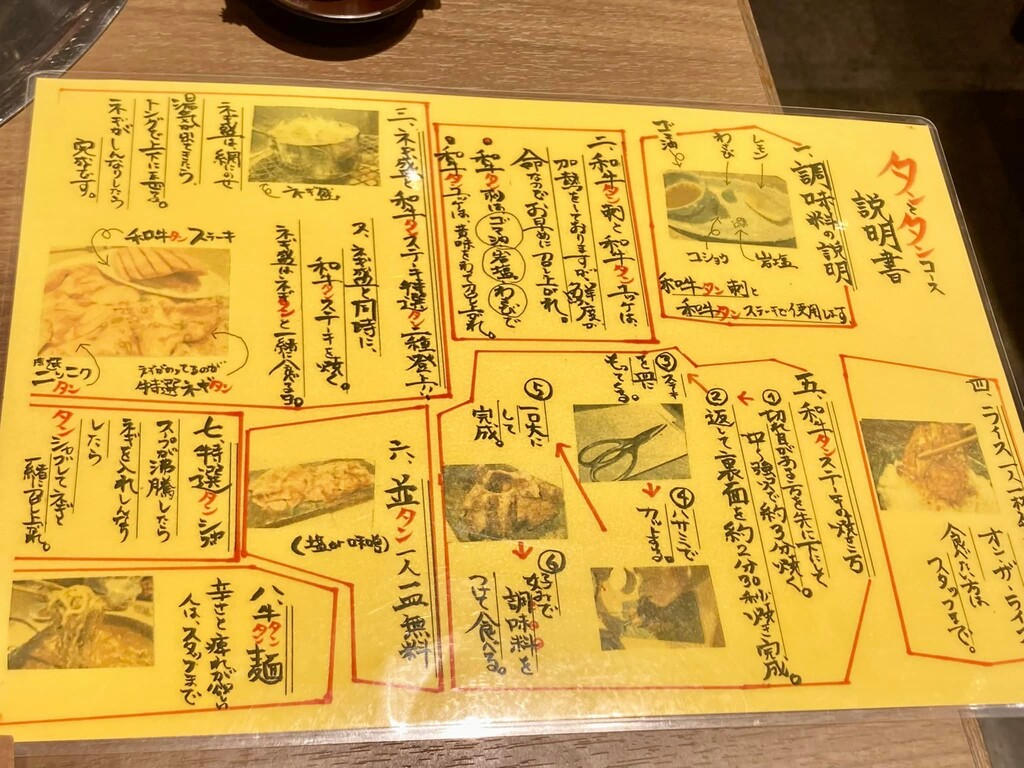 タンとタンコース
説明書
一、調味料の説明
レモン
わさび
ゴマ油
コショウ
岩塩
和牛タン刺と
和牛タンステーキで使用します。
二、和牛タン刺と和牛タンユッケは、
加熱をしておりますが鮮度が
命なのでお早めに召し上がれ。
●和牛タン刺はゴマ油岩塩わさびで
●和牛タンユッケは、黄味をわって召し上がれ。
三、ネギ盛と和牛タンステーキ特選タン二種登上!!
ネギ盛
ネギ盛は網にのせ
湯気が出てきたら
トングで上下にまぜる。
ネギがしんなりしたら
完成です。
又、ネギ盛と同時に、
和牛タンステーキを焼く。
ネギ盛はネギタンと一緒に食べる。
和牛タンステーキ
ニンニクタン
ネギがのってるのが
特選ネギタン
四、ライス一人一杯
オンザライスで
食べたい方は
スタッフまで。
五、和牛タンステーキの焼き方
①切れ目がある方を先に下にして
中〜強火で約3分焼く。
②返して裏面を約2分30秒焼き完成。
③ステーキ
を皿に
もってくる。
④ハサミで
カットする。
⑤一口大に
して
完成。
⑥好みで
調味料を
つけて食べる。
六、並タン一人一皿無料
(塩or味噌)
七、特選タンシャブ
スープが沸騰したら
ネギを入れしんなり
したら
タンシャブしてネギと
一緒に召し上がれ。
八、牛タンタン麺
辛さと痺れが欲しい
人は、スタッフまで